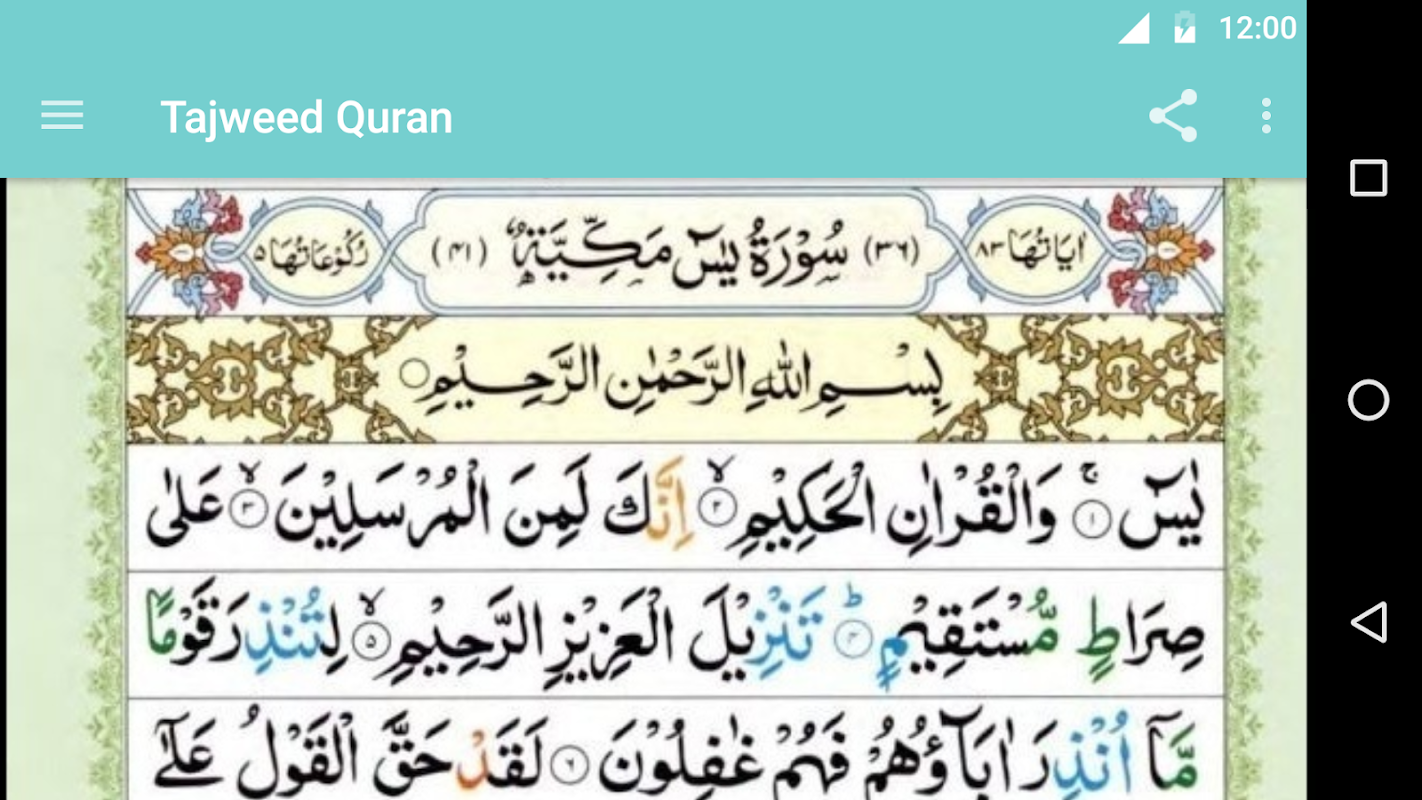 12:00
Tajweed Quran
اٰيَاتُهَا ٨٣ (٣٦) سُوْرَةُ يٰسٓ مَكِّيَّةٌ (٤١) رُكُوْعَاتُهَا ٥
بِسْمِ اللّٰهِ الرَّحْمٰنِ الرَّحِيْمِ
يٰسٓ ۚ ١ وَالْقُرْاٰنِ الْحَكِيْمِ ۙ ٢ اِنَّكَ لَمِنَ الْمُرْسَلِيْنَ ۙ ٣ عَلٰى
صِرَاطٍ مُّسْتَقِيْمٍ ؕ ٤ تَنْزِيْلَ الْعَزِيْزِ الرَّحِيْمِ ۙ ٥ لِتُنْذِرَ قَوْمًا
مَّاۤ اُنْذِرَ اٰبَآؤُهُمْ فَهُمْ غٰفِلُوْنَ ٦ لَقَدْ حَقَّ الْقَوْلُ عَلٰٓى